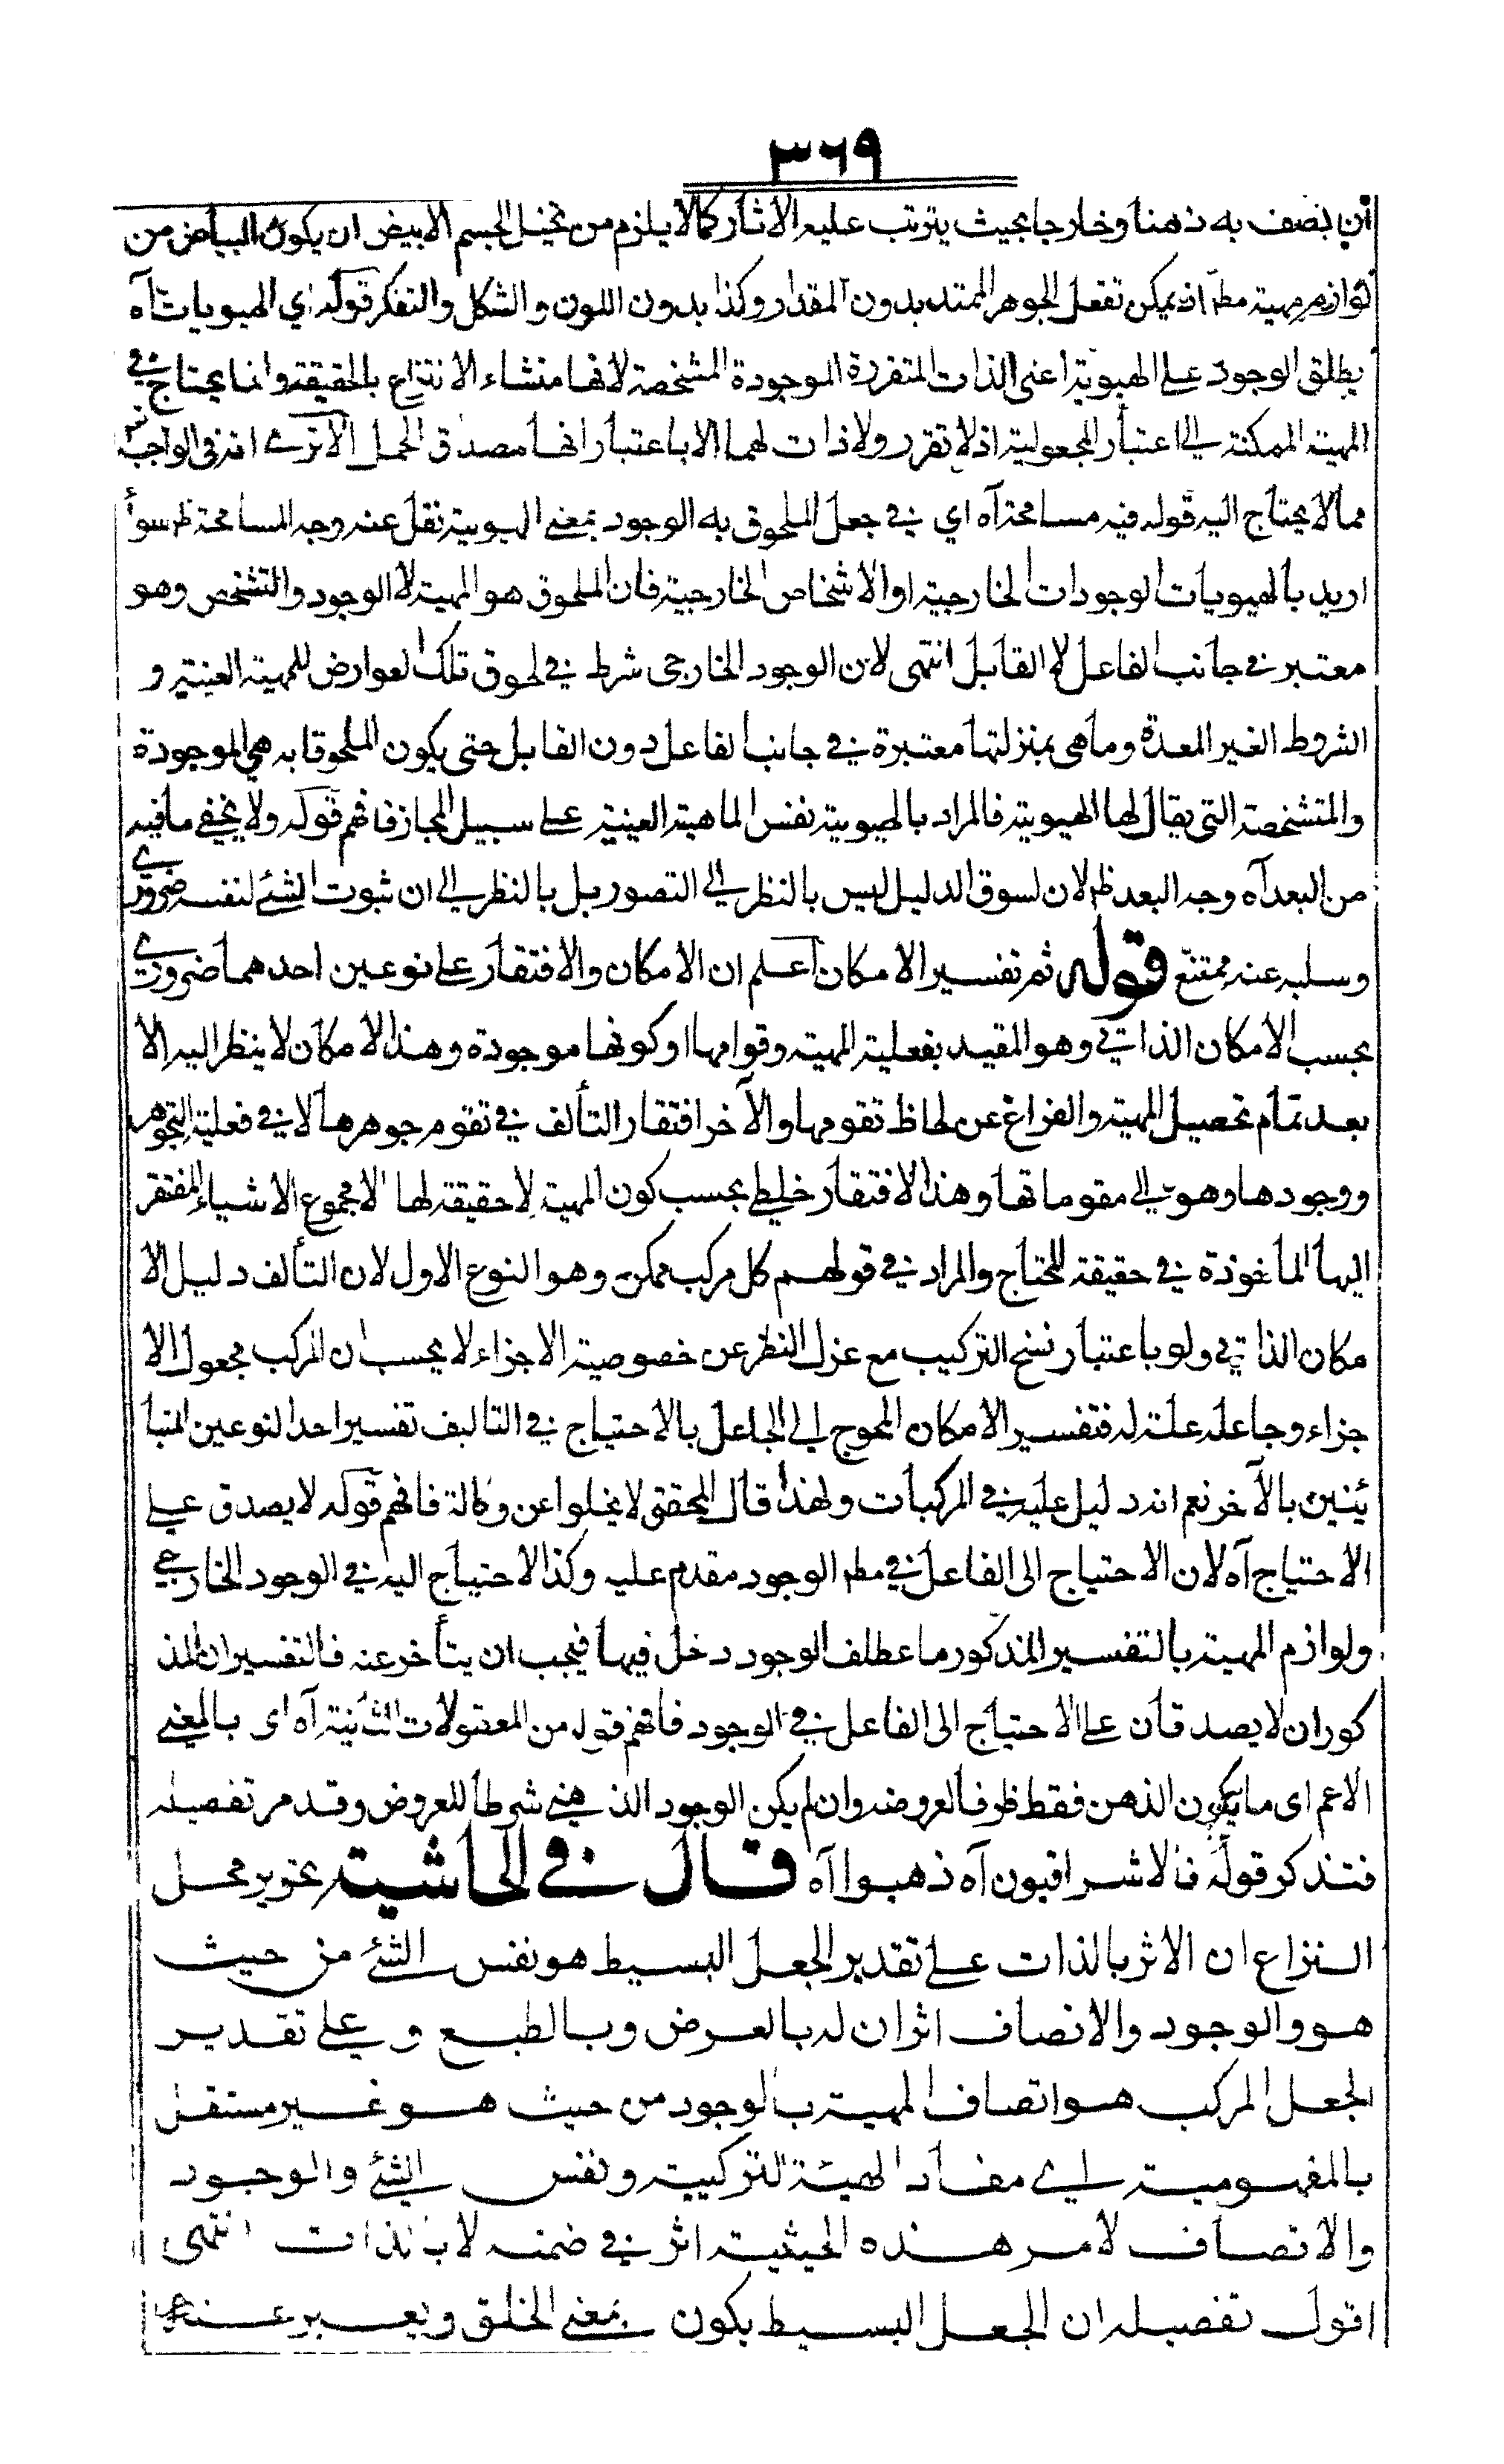 ٣٦٩
ان يتصف به ذهنا وخارجا بحيث يترتب عليه الاثار كما لا يلزم من تخيل الجسم الابيض ان يكون البياض من
لوازم مهيته مطہ اذ يمكن تعقل الجوهر الممتد بدون المقدار وكذا بدون اللون والشكل والتفكر قوله اي الهويات آه
يطلق الوجود على الهوية اعنى الذات المتقررة الموجودة المشخصة لانها منشاء الانتزاع بالحقيقة وانما يحتاج في
المهية الممكنة الى اعتبار المجعولية اذ لا تقرر ولا ذات لهما الا باعتبار انها مصداق الحمل الا ترى انه فى الواجب
مما لا يحتاج اليه قوله فيه مسامحة آه اي في جعل الملحوق به الوجود بمعنى الهوية نقل عنه وجه المسامحة ظہ سواء
اريد بالهويات الوجودات الخارجية او الاشخاص الخارجية فان الملحوق هو المهية لا الوجود والتشخص وهو
معتبر في جانب الفاعل لا القابل انتهى لان الوجود الخارجى شرط في لحوق تلك العوارض للمهية العينية و
الشروط الغير المعدة وما هى بمنزلتها معتبرة في جانب الفاعل دون القابل حتى يكون الملحوقا به هي الموجودة
والمتشخصة التى يقال لها الهوية فالمراد بالهوية نفس الماهية العينية على سبيل المجاز فافهم قوله ولا يخفى ما فيه
من البعد آه وجه البعد ظہ لان لسوق الدليل ليس بالنظر الى التصور بل بالنظر الى ان ثبوت الشئ لنفسه ضروري
وسلبه عنه ممتنع قوله ثم تفسير الامكان اعلم ان الامكان والافتقار على نوعين احدهما ضروري
بحسب الامكان الذاتي وهو المقيد بفعلية المهية وقوامها او كونها موجودة وهذا الامكان لا ينظر اليه الا
بعد تمام تحصيل المهية والفراغ عن لحاظ تقومها والآخر افتقار التألف في تقوم جوهرها لا في فعلية التجوهر
ووجودها وهو الى مقوماتها وهذا الافتقار خليط بحسب كون المهية لا حقيقة لها الا مجموع الاشياء المفتقر
اليها المأخوذة في حقيقة المحتاج والمراد في قولهم كل مركب ممكن وهو النوع الاول لان التألف دليل الا
مكان الذاتي ولو باعتبار نسخ التركيب مع عزل النظر عن خصوصية الاجزاء لا بحسب ان المركب مجعول الا
جزاء وجاعله علة له فتفسير الامكان المحوج الى الجاعل بالاحتياج في التاليف تفسير احد النوعين المتبا
ئنين بالآخر نعم انه دليل عليه في المركبات ولهذا قال المحقق لا يخلوا عن وكالة فافهم قوله لا يصدق على
الاحتياج آه لان الاحتياج الى الفاعل في مطہ الوجود مقدم عليه وكذا الاحتياج اليه في الوجود الخارجي
ولوازم المهية بالتفسير المذكور ما عطلف الوجود دخل فيها فيجب ان يتأخر عنه فالتفسيران المذ
كوران لا يصدقان على الاحتياج الى الفاعل في الوجود فافهم قوله من المعقولات الثانية آه اى بالمعنى
الاعم اى ما يكون الذهن فقط ظرفا لعروضه وان لم يكن الوجود الذهني شرطا للعروض وقد مر تفصيله
فتذكر قوله فالاشراقيون آه ذهبوا آه قال في الحاشية تحرير محل
النزاع ان الاثر بالذات على تقدير الجعل البسيط هو نفس الشئ من حيث
هو والوجود والاتصاف اثران له بالعرض وبالطبع وعلى تقدير
الجعل المركب هو اتصاف المهية بالوجود من حيث هو غير مستقل
بالمفهومية اي مفاد الهيئة التركيبية ونفس الشئ والوجود
والاتصاف لا مر هذه الحيثية اثر في ضمنه لا بالذات انتهى
اقول تفصيله ان الجعل البسيط يكون بمعنى الخلق ويعبر عنه